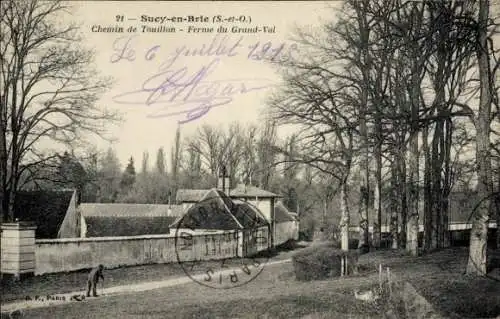 21 - SUCY-EN-BRIE (S.-et-O.)
Chemin de Touillon - Ferme du Grand-Val
Le 6 juillet
PARIS
B. F., PARIS